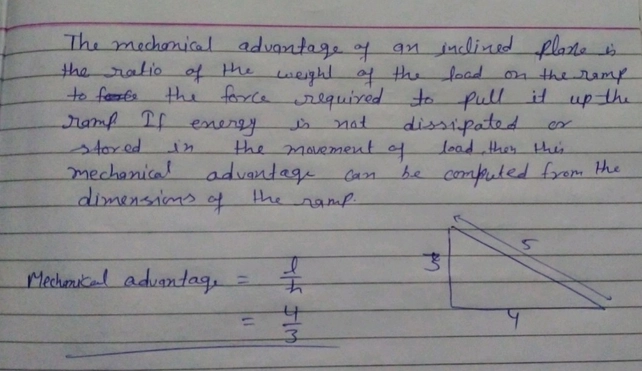 The mechanical advantage of an inclined plane is
the ratio of the weight of the load on the ramp
to the force required to pull it up the
ramp If energy is not dissipated or
stored in the movement of load, then this
mechanical advantage can be computed from the
dimensions of the ramp.
Mechanical advantage = l/h
= 4/3
3
5
4